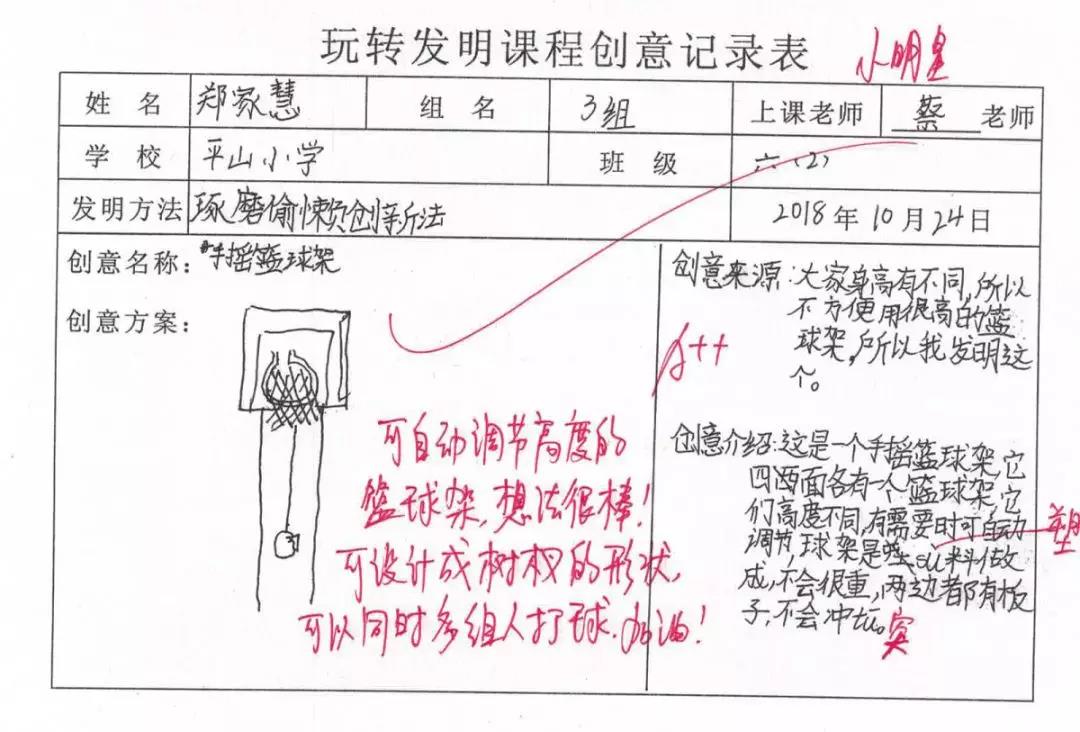 玩转发明课程创意记录表
小明星
姓 名 郑家慧 组 名 3组 上课老师 蔡 老师
学 校 平山小学 班 级 六(2)
发明方法 琢磨偷懒创新法 2018年10月24日
创意名称：手摇篮球架
创意方案：
可自动调节高度的
篮球架,想法很棒!
可设计成树杈的形状,
可以同时多组人打球.加油!
创意来源:大家身高有不同,所以
不方便用很高的篮
球架,所以我发明这
个。
A++
创意介绍:这是一个手摇篮球架,它
四面各有一个篮球架,它
们高度不同,有需要时可自动
调节,球架是su料做
塑
成,不会很重,两边都有板
子,不会冲